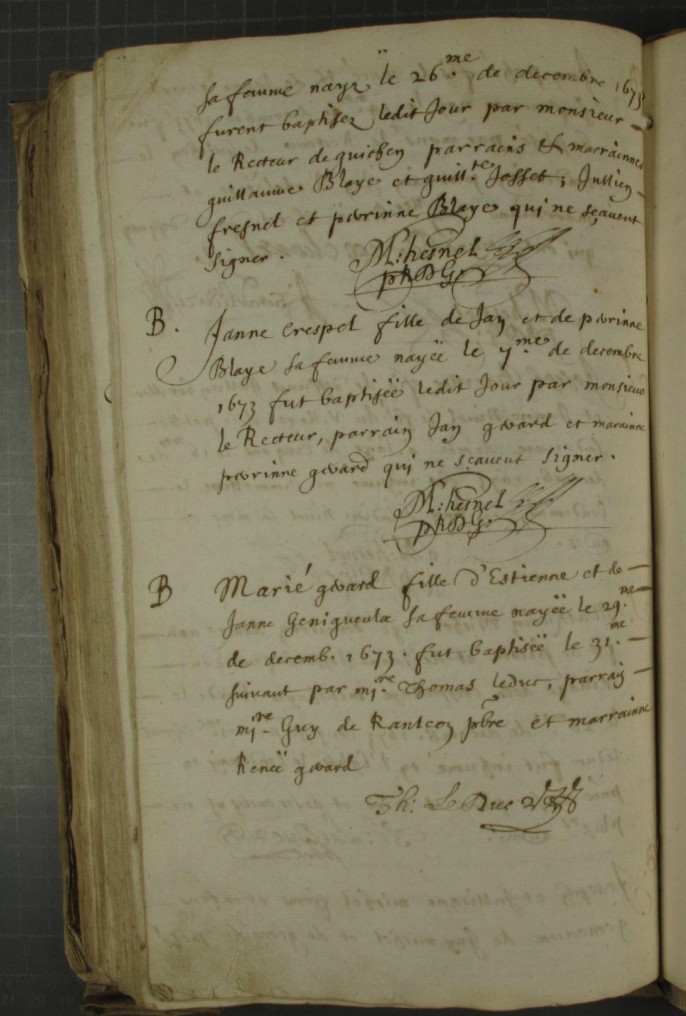 sa femme nayz le 26.me de decembre 1673
furent baptisez ledit Jour par monsieur
le Recteur de guichen parrains & marrainnes
guillaume Blaye et guill.te Josset; Jullien
fresnel et perrinne Blaye qui ne sçavent
signer.
B. Janne Crespel fille de Jan et de perrinne
Blaye sa femme nayëe le 7.me de decembre
1673 fut baptisëë ledit Jour par monsieur
le Recteur, parrain Jan gward et marainne
perrinne gward qui ne sçavent signer.
B Marié gward fille d'Estienne et de
Janne sa femme nayëe le 29.me
de decemb. 1673. fut baptisëë le 31.me
suivant par mi.re Thomas leduc, parrain
mi.re Guy de pbre et marrainne
Reneë gward
Th: Le Duc